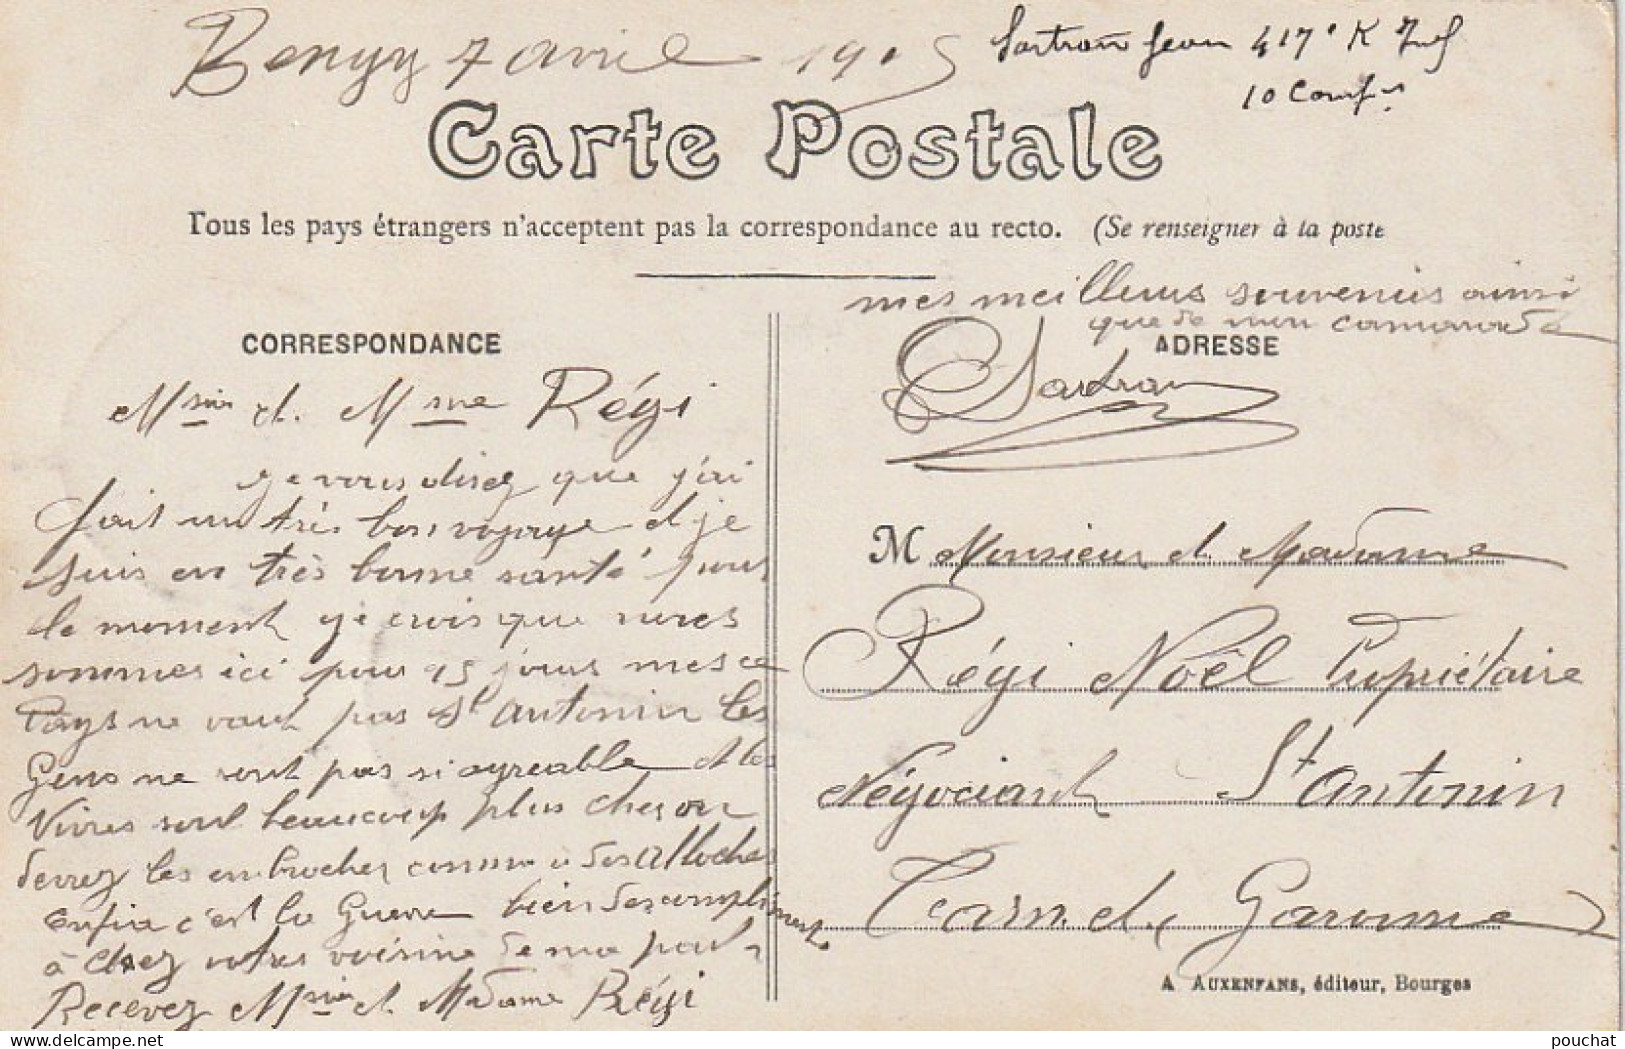 Bengy 7 avril 1915
Sartran Jean 417e
10 Comp
Carte Postale
Tous les pays étrangers n'acceptent pas la correspondance au recto. (Se renseigner à la poste
mes meilleurs souvenirs ainsi
que de mon camarade
CORRESPONDANCE
ADRESSE
Sartran
et Mme Régi
je vous disez que j'ai
fait un très bon voyage et je
suis en très bonne santé pour
le moment je crois que nous
sommes ici pour 15 jours mes ce
Pays ne vaut pas St Antonin les
Gens ne sont pas si agreable et les
Vivres sont beaucoup plus cher on
les embrocher comme
enfin c'est la Guerre bien des compliments
à chez votre voisine de ma part
Recevez et Madame Régi
M Monsieur et Madame
Régi Noël Propriétaire
Négociant St Antonin
Tarn et Garonne
A. AUXENFANS, éditeur, Bourges
delcampe.net
pouchat